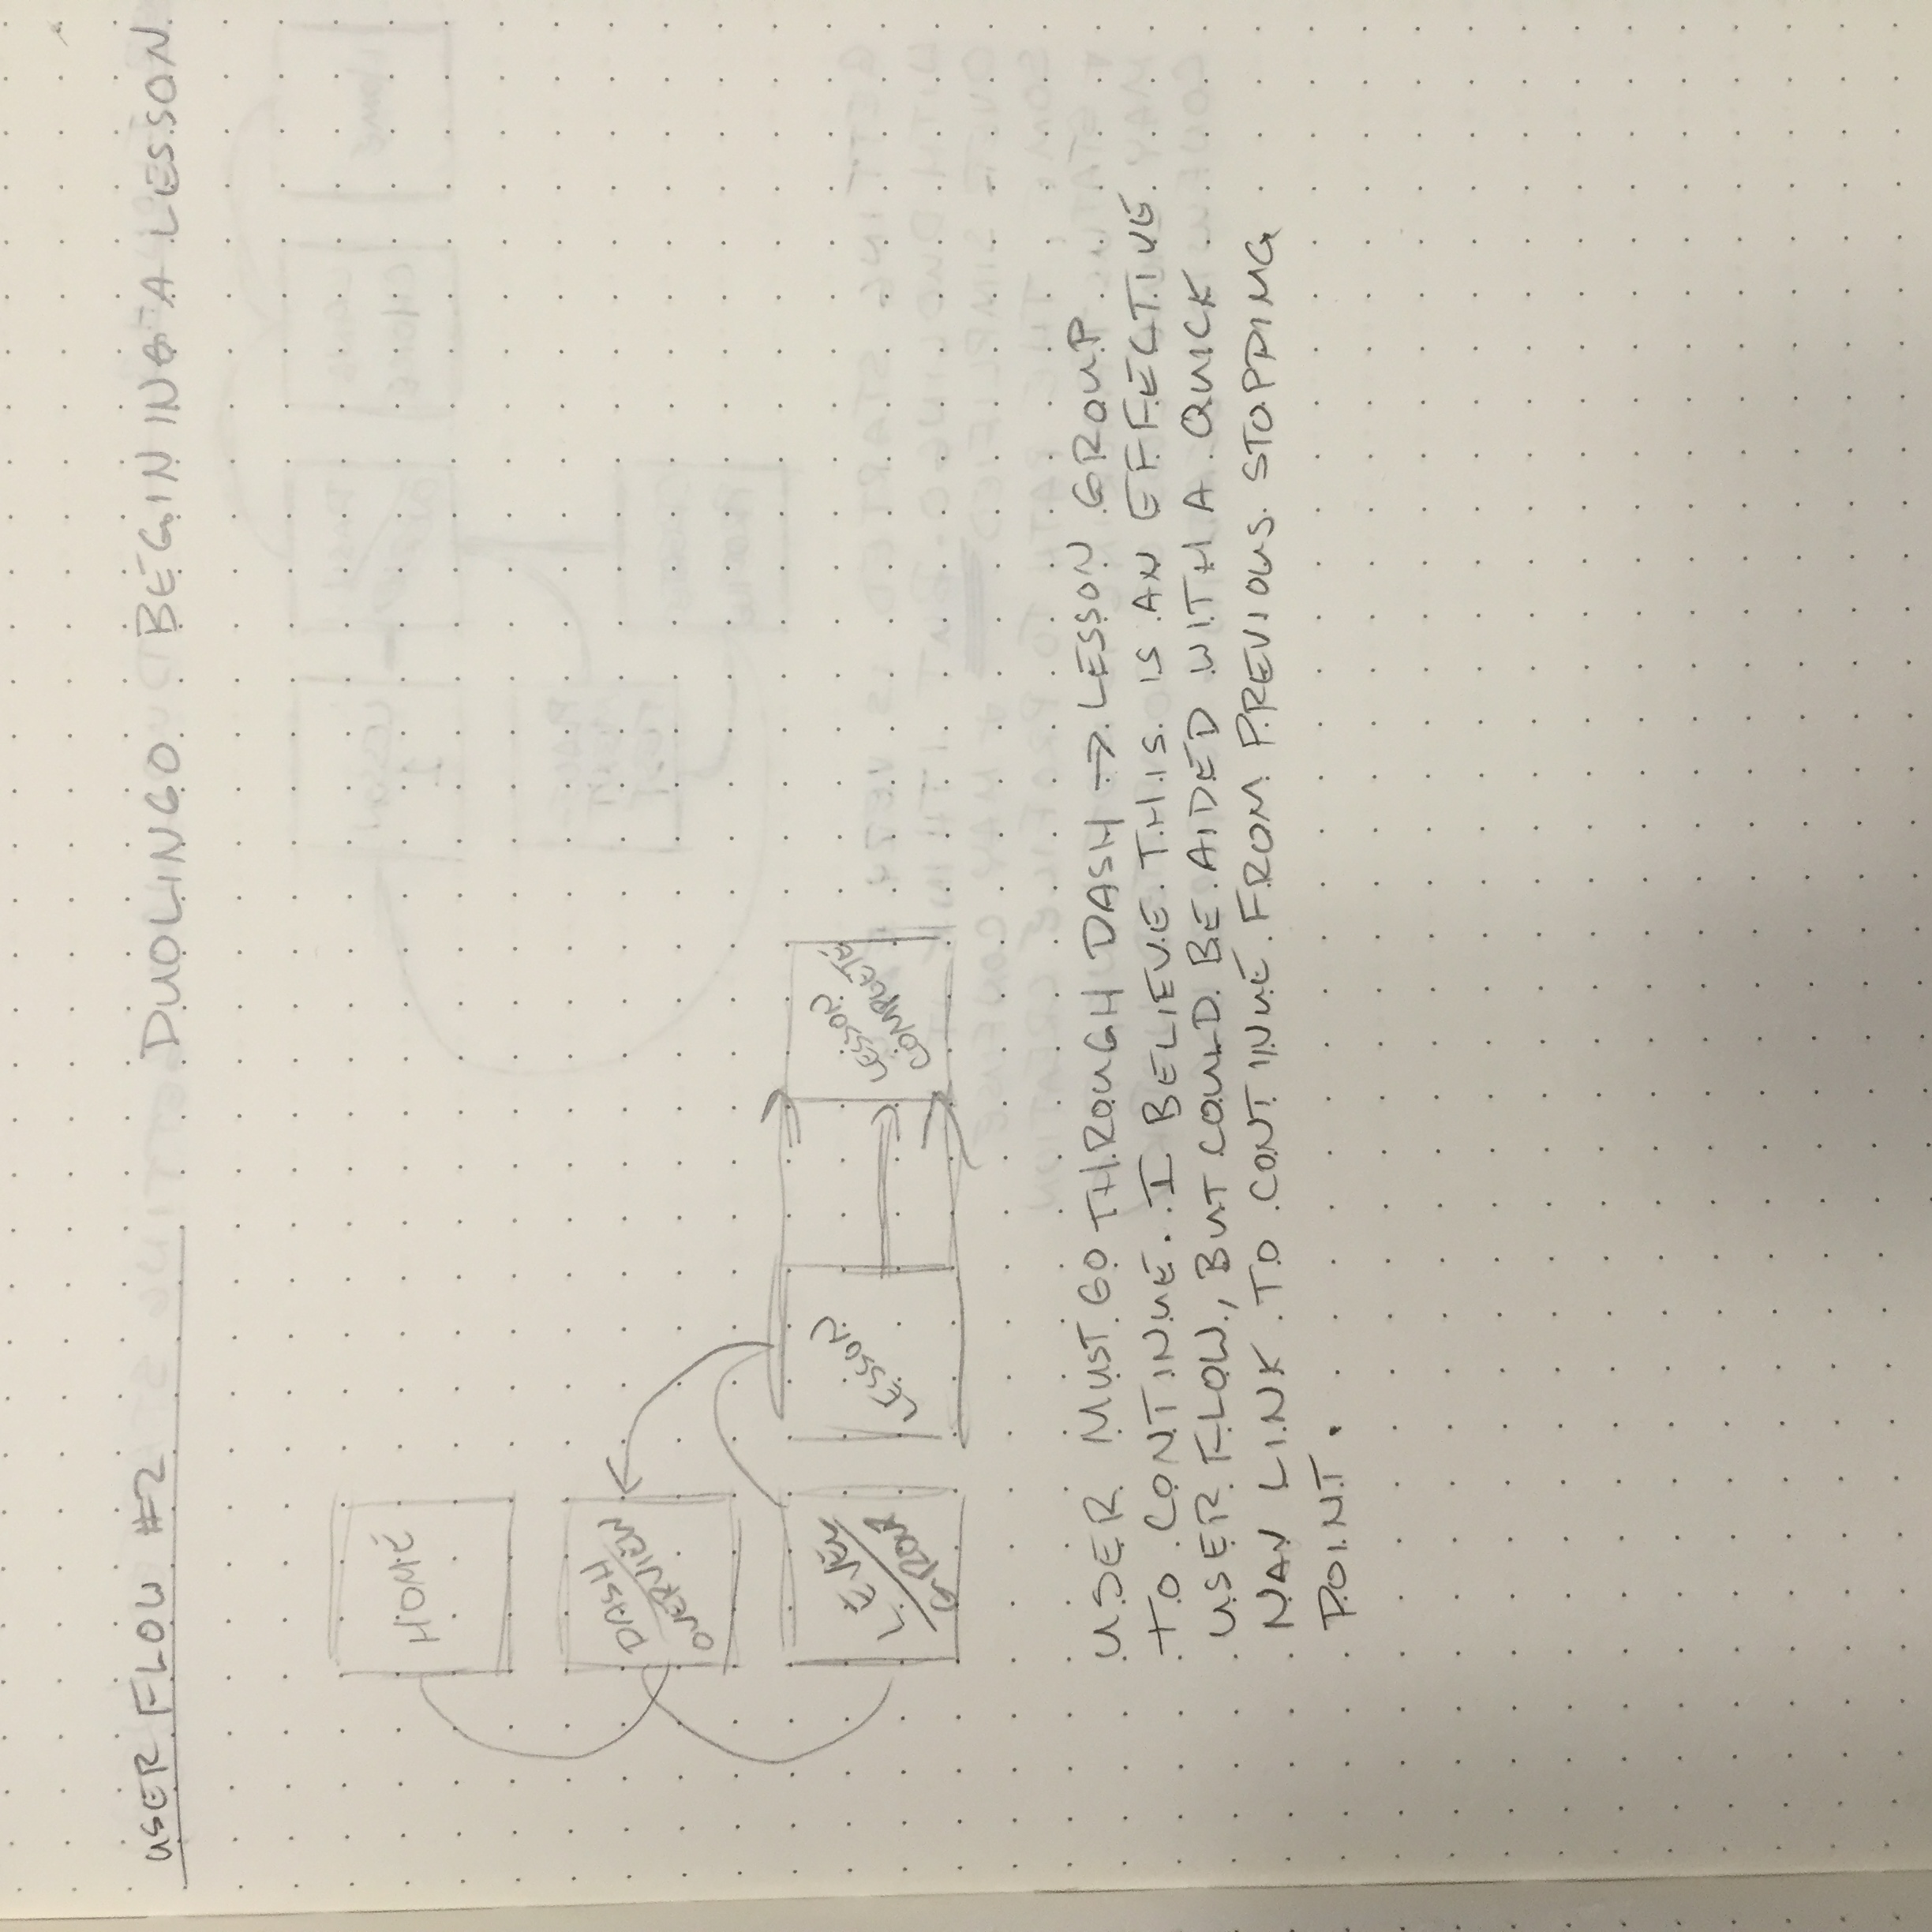 USER FLOW #2
DUOLINGO BEGINING A LESSON
HOME
DASH
OVERVIEW
LEVEL
GROUP
LESSON
LESSON
COMPLETE
USER MUST GO THROUGH DASH → LESSON GROUP
TO CONTINUE. I BELIEVE THIS IS AN EFFECTIVE
USER FLOW, BUT COULD BE AIDED WITH A QUICK
NAV LINK TO CONTINUE FROM PREVIOUS STOPPING
POINT.